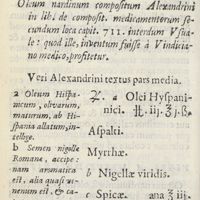 Oleum nardinum compositum Alexandrini
in lib: de composit. medicamentorum se-
cundum loca capit. 711. interdum Vsua-
le: quod ille, inuentum fuisse à Vindicia-
no medico, profitetur.
Veri Alexandrini textus pars media.
a Oleum Hispa-
nicum, oliuarum,
maturum, ab Hi-
spania allatum, in-
tellige.
b Semen nigellæ
Romanæ, accipe:
nam aromatica
est, alia quasi vi-
nenum est, & ca-
♃. a Olei Hyspani-
nici. ℔. iij. ℥. j. ß
Aspalti.
Myrrhæ.
b Nigellæ viridis.
c Spicæ. ana ℥ iij.